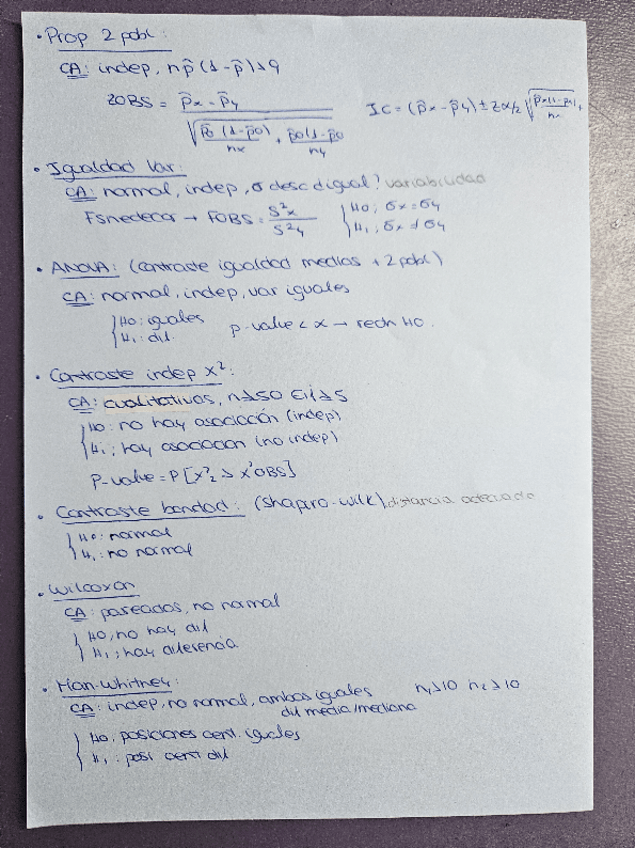 · Prop 2 pobl:
CA: indep, n p̂ (1 - p̂) ≥ 9
ZOBS = p̂x - p̂y / √(p̂0 (1 - p̂0) / nx + p̂0 (1 - p̂0 / ny) IC = (p̂x - p̂y) ± zα/2 √(p̂x(1-p̂x) / nx +
· Igualdad Var:
CA: normal, indep, σ desc d igual? variabilidad
F Snedecor → FOBS = S²x / S²y { H0: σx = σy
H1: σx ≠ σy
· ANOVA: (contraste igualdad medias + 2 pobl)
CA: normal, indep, var iguales
{ H0: iguales p-value < α → rech H0.
H1: dif.
· Contraste indep X²:
CA: cualitativos, n ≥ 50 Eij ≥ 5
{ H0: no hay asociación (indep)
H1: hay asociacion (no indep)
P-value = P [X²2 ≥ X²OBS]
· Contraste bondad: (Shapiro-Wilk), distancia adecuada
{ H0: normal
H1: no normal
· Wilcoxon
CA: pareados, no normal
{ H0: no hay dif
H1: hay diferencia
· Man-Whitney:
CA: indep, no normal, ambas iguales n1 ≥ 10 n2 ≥ 10
dif media/mediana
{ H0: posiciones cent. iguales
H1: posi cent dif